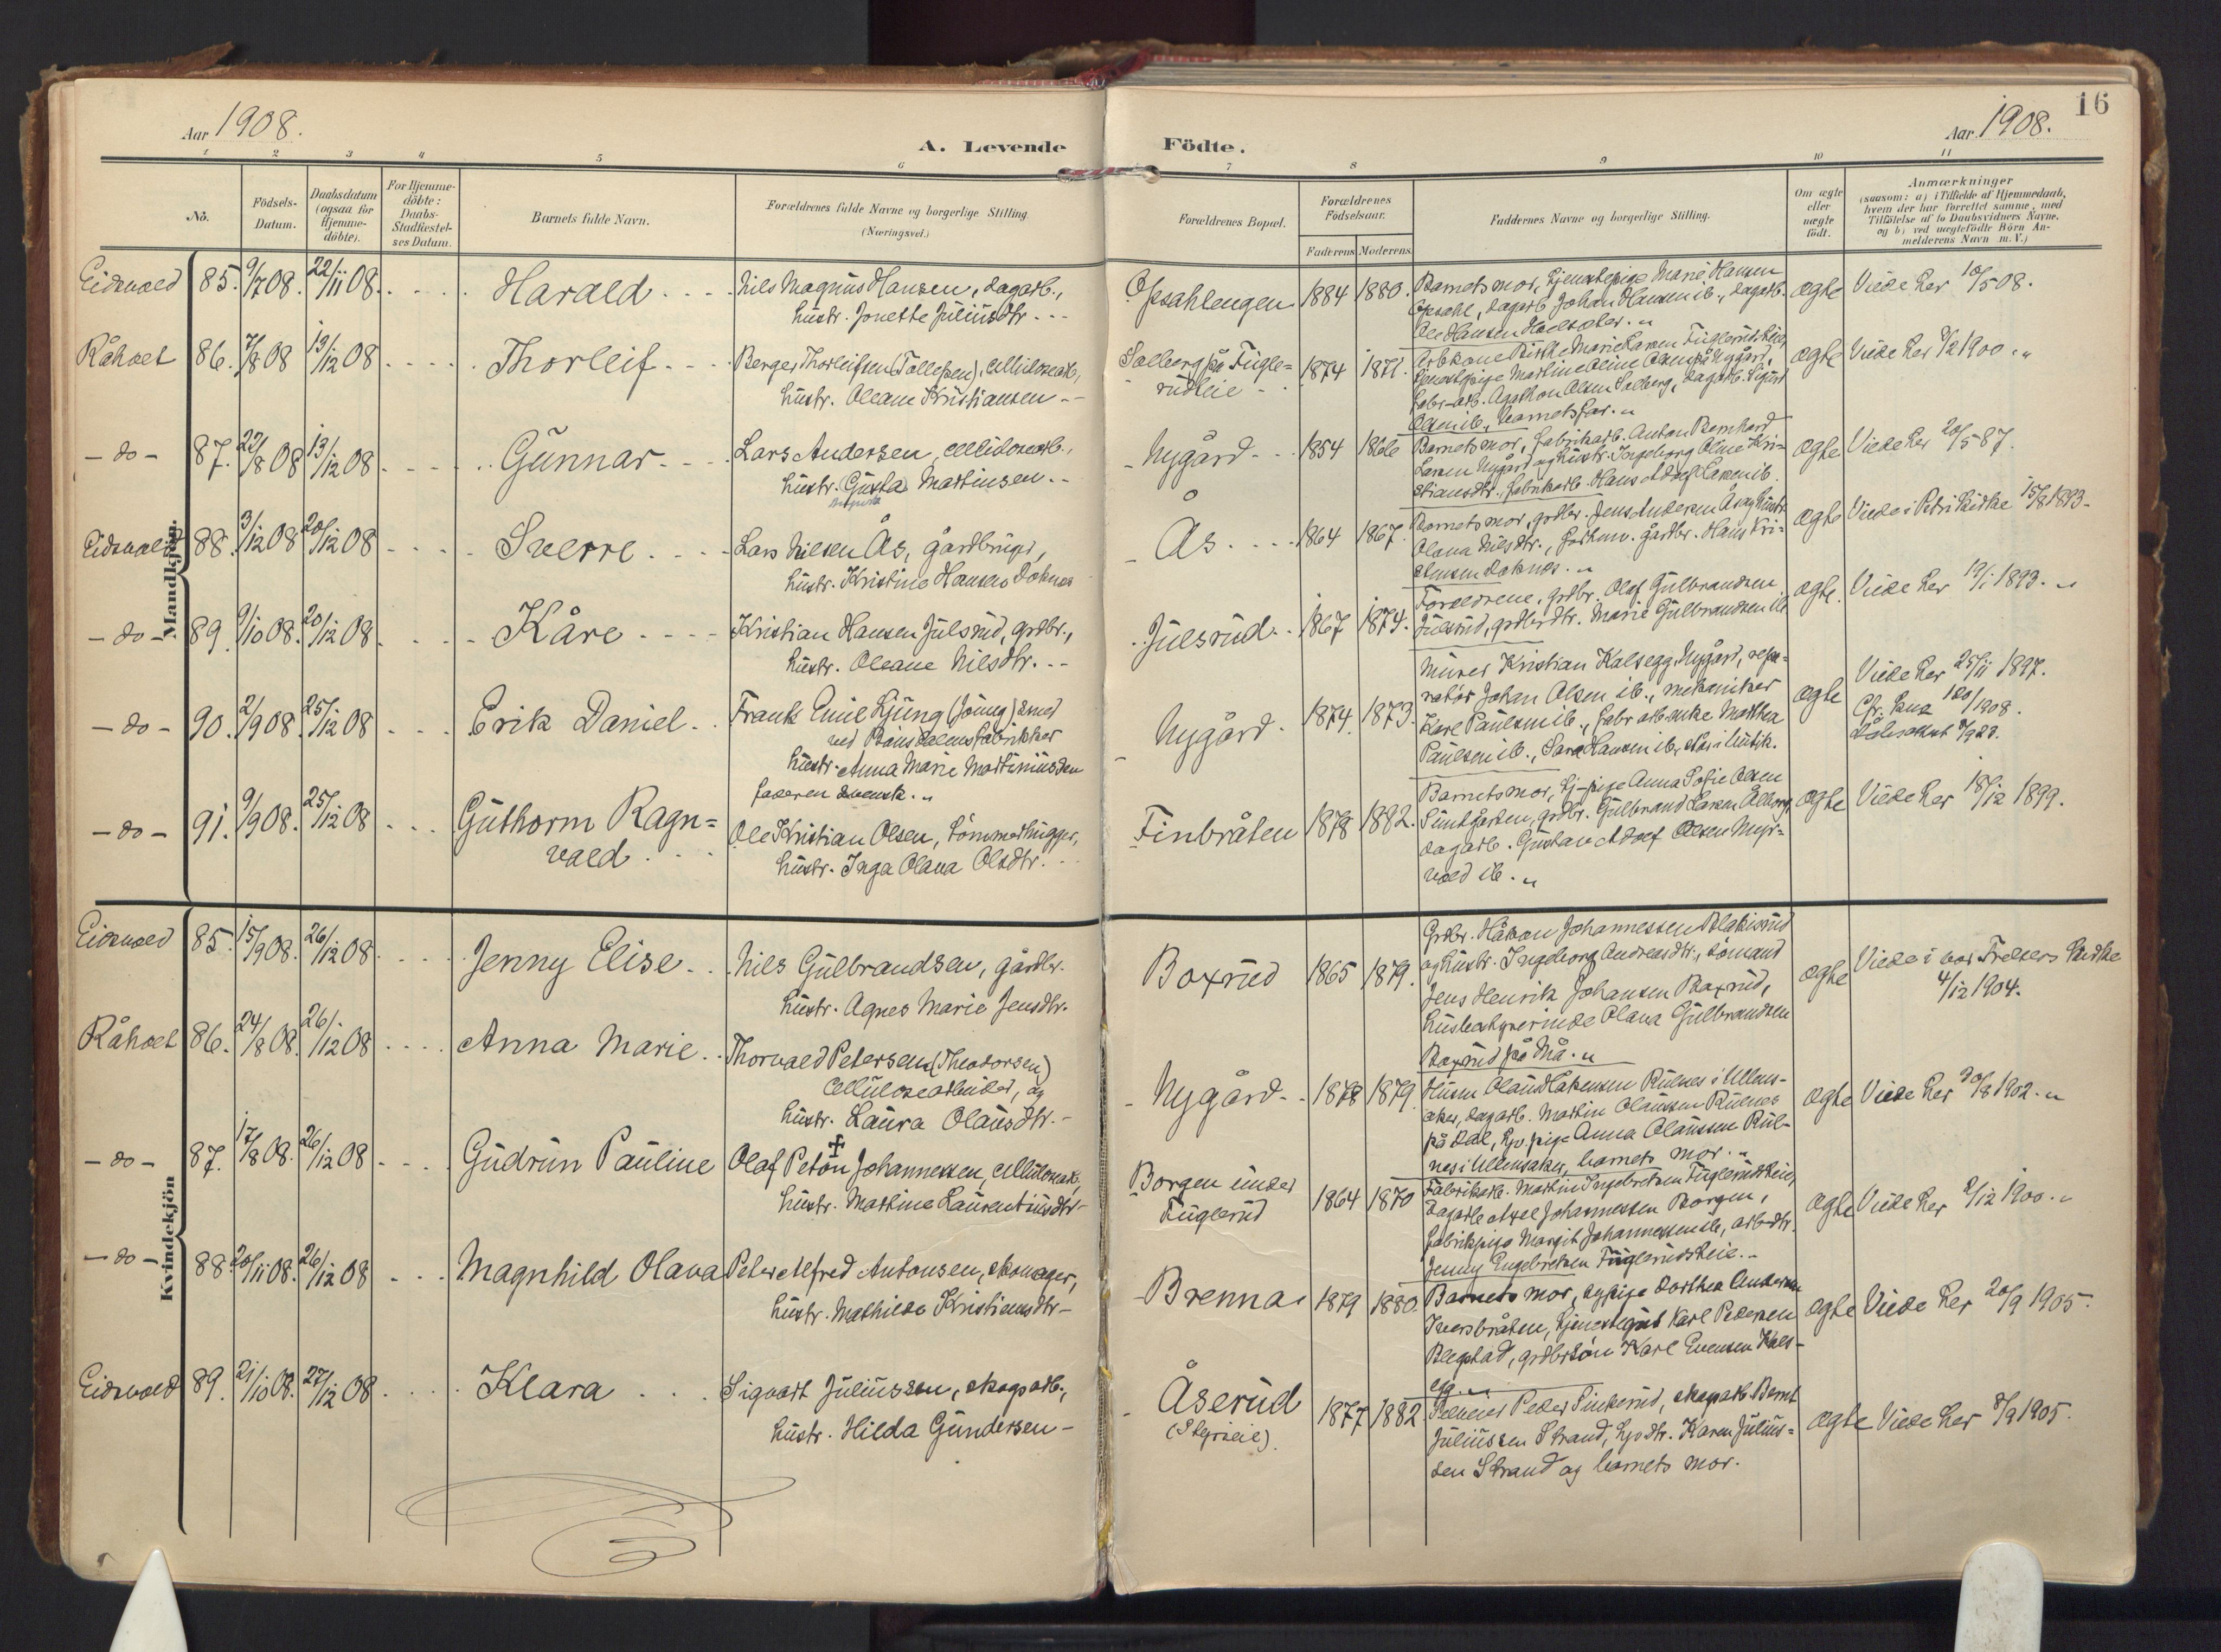 Aar 1908.
A. Levende
Födte.
Aar 1908.
16
1 2 3 4 5 6 7 8 9 10 11
No.
Födsels-
Datum.
Daabsdatum
(ogsaa for
Hjemme-
döbte).
For Hjemme-
döbte:
Daabs-
Stadfæstel-
ses Datum.
Barnets fulde Navn.
Forældrenes fulde Navne og borgerlige Stilling
(Næringsvei.)
Forældrenes Bopæl.
Forældrenes
Födselsaar.
Faderens Moderens
Faddernes Navne og borgerlige Stilling.
Om ægte
eller
uægte
födt.
Anmærkninger
(saasom: a) i Tilfælde af Hjemmedaab,
hvem der har forrettet samme, med
Tilföielse af to Daabsvidners Navne.
og b) ved uægtefödte Börn An-
melderens Navn m. V.)
Mandkjön.
Eidsvold 85. 9/7 08. 22/11 08. Harald
Nils Magnus Hansen, dagarb.,
hustr. Jonette Juliusdtr.
Opsahlengen 1884 1880.
Barnets mor, tjenestepige Marie Hansen
Opsahl, dagarb. Johan Hansen ib., dagarb.
Ole Hansen
ægte Viede her 10/5 08.
Råholt 86. 7/8 08 13/12 08 Thorleif
Berger Thorleifsen (Tollefsen), cellulosearb.,
hustr. Oleane Kristiansen
Solberg på Fugle-
rudeie 1874 1871.
Marie Larsen Fuglerudeie,
tjenestepige Martine Oline Olsen på Nygård,
fabr-arb. Agathon Olsen Solberg, dagarb. Sigurd
Olsen ib., barnets far.
ægte Viede her 2/12 1900.
- do - 87. 22/8 08 13/12 08 Gunnar
Lars Andersen, cellulosearb.,
hustr. Gusta Martinsen
Augusta
Nygård 1854 1866
Barnets mor, fabrikarb. Anton Bernhard
Larsen Nygård og hustr. Ingeborg Oline Kri-
stiansdtr., fabrikarb. Hans Adolf Larsen ib.
ægte Viede her 20/5 87.
Eidsvold 88. 3/12 08 20/12 08 Sverre
Lars Nilsen Ås, gårdbruger,
hustr. Kristine Hansen Doknes
Ås 1864 1867.
Barnets mor, grdbr. Jens Andersen Ås og hustr.
Olava Nilsdtr., forhenv. gårdbr. Hans Kri-
stensen Doknes.
ægte Viede i Petri Kirke 15/8 1893.
- do - 89. 9/10 08. 20/12 08 Kåre
Kristian Hansen Julsrud, grdbr.,
hustr. Oleane Nilsdtr.
Julsrud 1867 1874.
Forældrene, grdbr. Olaf Gulbrandsen
Julsrud, grdbrdtr. Marie Gulbrandsen ib
ægte. Viede her 19/1 1893.
- do - 90. 2/9 08. 25/12 08 Erik Daniel
Frank Emil Ljung (Jöung) smed
ved Bönsdalens fabrikker
hustr. Anna Marie Martiniusdtr
faderen svensk.
Nygård 1874 1873.
Murer Kristian Kalsegg, Nygård, repa-
ratör Johan Olsen ib., mekaniker
Karl Paulsen ib., fabr arb enke Mathea
Paulsen ib., Sara Hansen ib.
ægte Viede her 25/11 1897.
Dåbsattest
- do - 91. 9/9 08. 25/12 08 Guthorm Ragn-
vald
Ole Kristian Olsen, tömmerhugger,
hustr. Inga Olava Olsdtr.
Finbråten 1878 1882.
Barnets mor, tj-pige Anna Sofie Olsen
grdbr. Gulbrand Larsen
dagarb. Gustav Adolf Olsen Myr-
vold ib.
ægte Viede her 18/12 1899.
Kvindekjön
Eidsvold 85. 15/9 08. 26/12 08 Jenny Elise
Nils Gulbrandsen, gårdbr.
hustr. Agnes Marie Jensdtr.
Boxrud 1865 1879.
Grdbr. Håkon Johannessen Blakisrud
og hustr. Ingeborg Andreasdtr., sömand
Jens Henrik Johansen Boxrud,
husbestyrerinde Olava Gulbrandsen
Boxrud på Må.
ægte Viede i vor Frelsers kirke
4/12 1904.
Råholt 86. 24/8 08. 26/12 08 Anna Marie
Thorvald Petersen (Theodorsen)
cellulosearbeider, og
hustr. Laura Olausdtr.
Nygård 1878 1879
Husm. Olaus Håkensen Rulnes i Ullens-
aker, dagarb. Martin Olaussen Rulnes
på Dal, tjv. pige Anna Olaussen Rul-
nes i Ullensaker, barnets mor.
ægte Viede her 30/8 1902.
- do - 87. 17/8 08. 26/12 08 Gudrun Pauline
Olaf Peton Johannessen, cellulosearb.,
hustr. Martine Laurentiusdtr
Borgen under
Fuglerud 1864 1870
Fabrikarb. Martin Ingebretsen Fuglerudeie,
dagarb. Axel Johannessen Borgen,
fabrikpige Margit Johannessen ib., arb-dtr.
Jenny Engebretsen Fuglerudeie.
ægte Viede her 2/12 1900.
- do - 88. 20/11 08. 26/12 08 Magnhild Olava
Peter Alfred Antonsen, skomager,
hustr. Mathilde Kristiansdtr
Brenna 1879 1880.
Barnets mor, sypige Dorthea Andersen
Iversbråten, tjenestegut Karl Pedersen
Blegstad, grdbrsön Karl Evensen Kals-
egg.
ægte Viede her 20/9 1905.
Eidsvold 89. 21/10 08. 27/12 08 Klara
Sigvart Juliussen, skogsarb.,
hustr. Hilda Gundersen
Åserud
(Styrieie). 1877 1882
Peder Finkerud, skogsarb. Bernt
Juliussen Strand, tjv dtr. Karen Julius-
sen Strand og barnets mor.
ægte Viede her 8/9 1905.